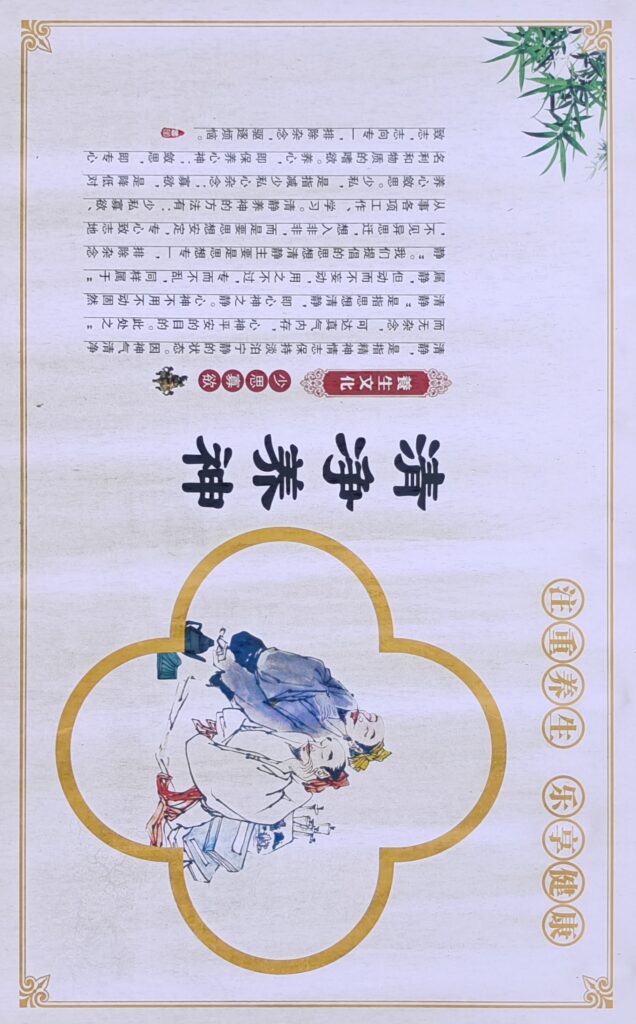 注重养生 乐享健康
清净养神
養生文化
少思寡欲
清静，是指精神情志保持淡泊宁静的状态。因神气清净
而无杂念，可达真气内存，心神平安的目的。此处之“
清静”是指思想清静，即心神之静。心神不用不动固然
属静，但动而不妄动，用之不过，专而不乱，同样属于“
静”。我们提倡的思想清静主要是思想专一，排除杂念
，不见导思迁，想入非非，而是要思想安定，专心致志地
从事各项工作、学习。清静养神的方法有：少私寡欲、
养心敛思。少私，是指减少私心杂念；寡欲，是降低对
名利和物质的嗜欲。养心，即保养心神；敛思，即专心
致志，志向专一，排除杂念，驱逐烦恼。